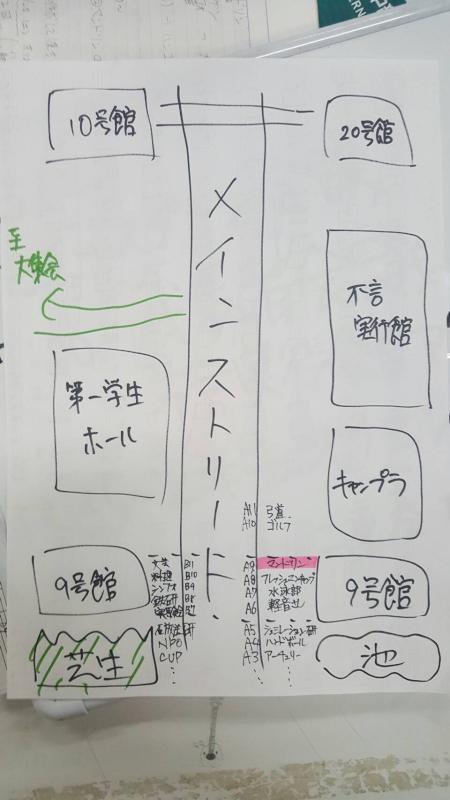 10号館
20号館
メインストリート
至
大集会
不言
実行館
第一学生
ホール
キャンプラ
A11 弓道
A10 ゴルフ
9号館
文芸 B11
料理 B10
シンフォ B9
鉄研 B8
A9 マンドリン
A8 フレッシュマンキャンプ
A7 水泳部
A6 軽音せし
9号館
放送研
NPO
CUP
A5 シュミレーション研
A4 ハンドボール
A3 アーチェリー
芝生
池